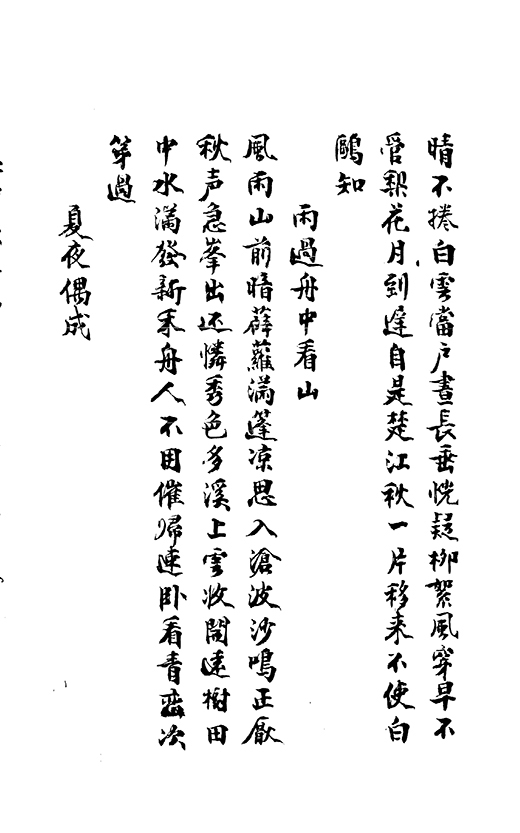 晴不捲白雲當户晝長垂恍疑柳絮風穿早不
管梨花月到遲自是楚江秋一片移来不使白
鷗知
雨過舟中看山
風雨山前暗薜蘿滿篷凉思入滄波沙鳴正厭
秋声急峯出还憐秀色多溪上雲收開遠樹田
中水滿發新禾舟人不用催歸速卧看青巒次
第過
夏夜偶成